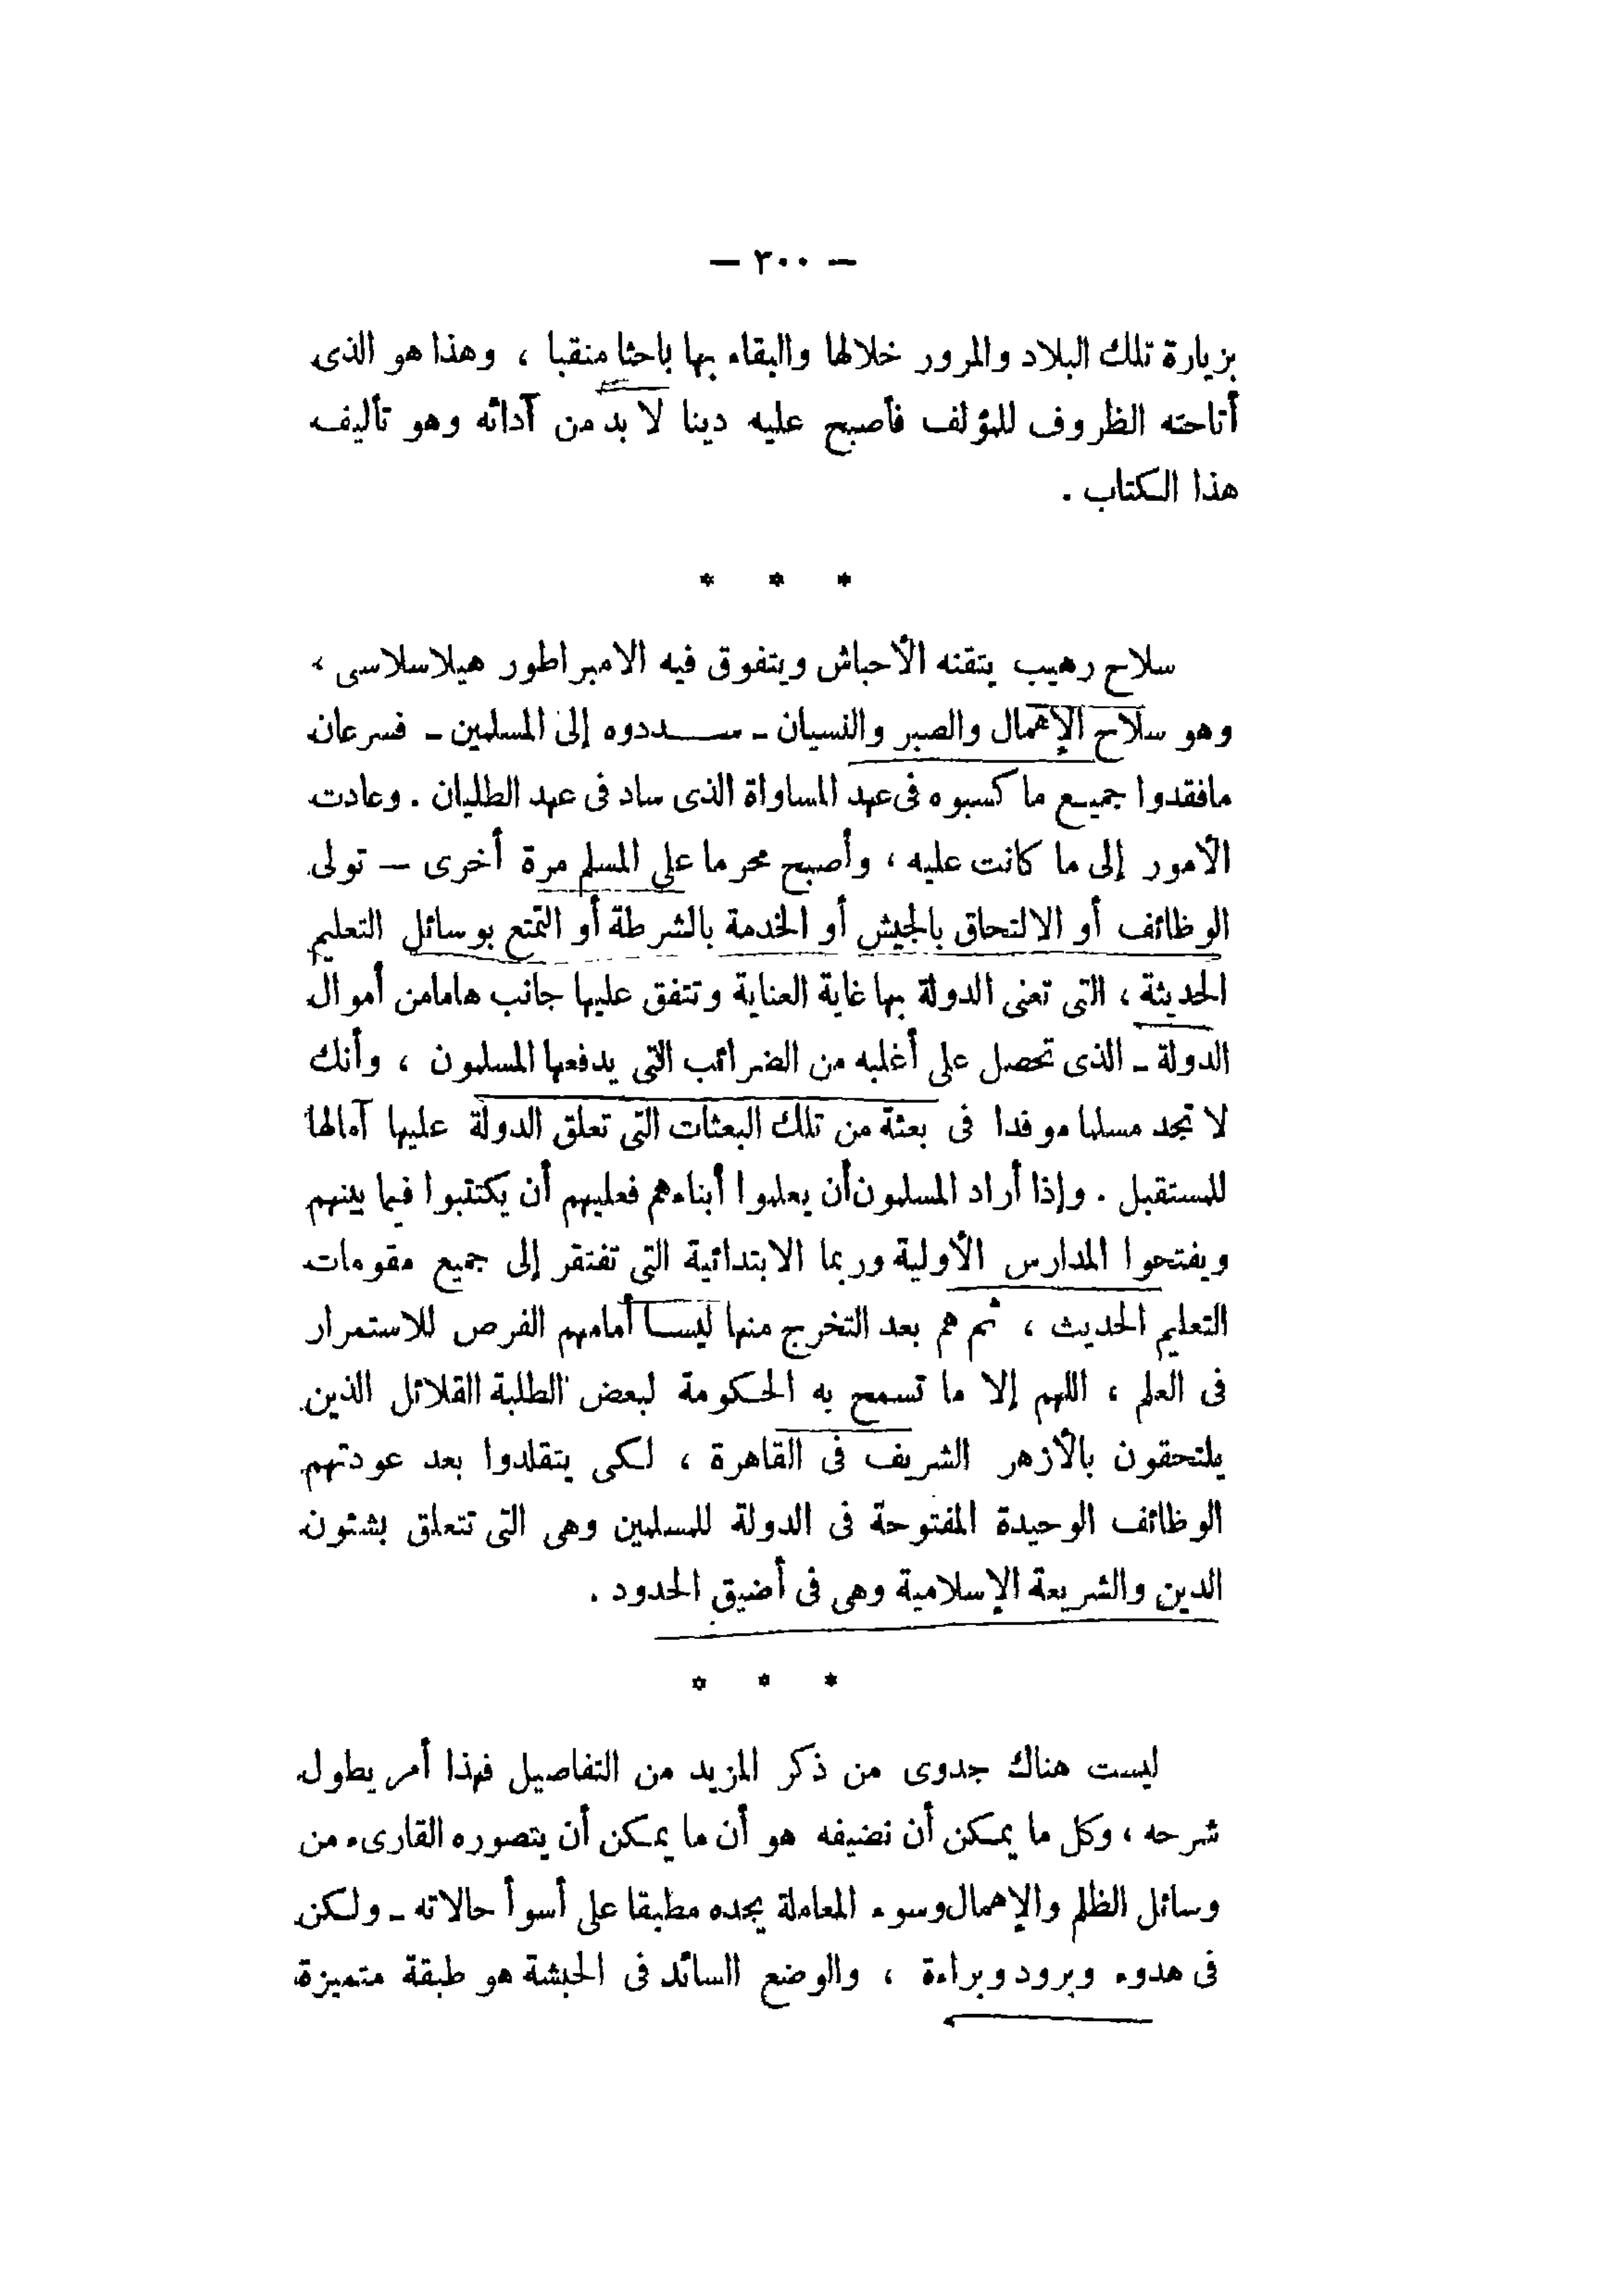 — ٢٠٠ —
بزيارة تلك البلاد والمرور خلالها والبقاء بها باحثا منقبا ، وهذا هو الذى
أتاحته الظروف للمؤلف فأصبح عليه دينا لا بد من آدائه وهو تأليف
هذا الكتاب .
* * *
سلاح رهيب يتقنه الأحباش ويتفوق فيه الامبراطور هيلاسلاسى ،
وهو سلاح الإهمال والصبر والنسيان - سددوه إلى المسلمين - فسرعان
مافقدوا جميع ما كسبوه فى عهد المساواة الذى ساد فى عهد الطليان . وعادت
الأمور إلى ما كانت عليه ، وأصبح محرما على المسلم مرة أخرى — تولى
الوظائف أو الالتحاق بالجيش أو الخدمة بالشرطة أو التمتع بوسائل التعليم
الحديثة ، التى تعنى الدولة بها غاية العناية وتتفق عليها جانب هامامن أموال
الدولة - الذى تحصل على أغلبه من الضرائب التى يدفعها المسلمون ، وأنك
لا تجد مسلما موفدا فى بعثة من تلك البعثات التى تعلق الدولة عليها آمالها
للمستقبل . وإذا أراد المسلمون أن يعلموا أبناءهم فعليهم أن يكتتبوا فيما بينهم
ويفتحوا المدارس الأولية وربما الابتدائية التى تفتقر إلى جميع مقومات
التعليم الحديث ، ثم هم بعد التخرج منها ليسا أمامهم الفرص للاستمرار
فى العلم ، اللهم إلا ما تسمح به الحكومة لبعض الطلبة القلائل الذين
يلتحقون بالأزهر الشريف فى القاهرة ، لكى يتقلدوا بعد عودتهم
الوظائف الوحيدة المفتوحة فى الدولة للمسلمين وهى التى تتعلق بشئون
الدين والشريعة الإسلامية وهى فى أضيق الحدود .
* * *
ليست هناك جدوى من ذكر المزيد من التفاصيل فهذا أمر يطول
شرحه ، وكل ما يمكن أن نضيفه هو أن ما يمكن أن يتصوره القارىء من
وسائل الظلم والإهمال وسوء المعاملة يجده مطبقا على أسوأ حالاته - ولكن
فى هدوء وبرود وبراءة ، والوضع السائد فى الحبشة هو طبقة متميزة